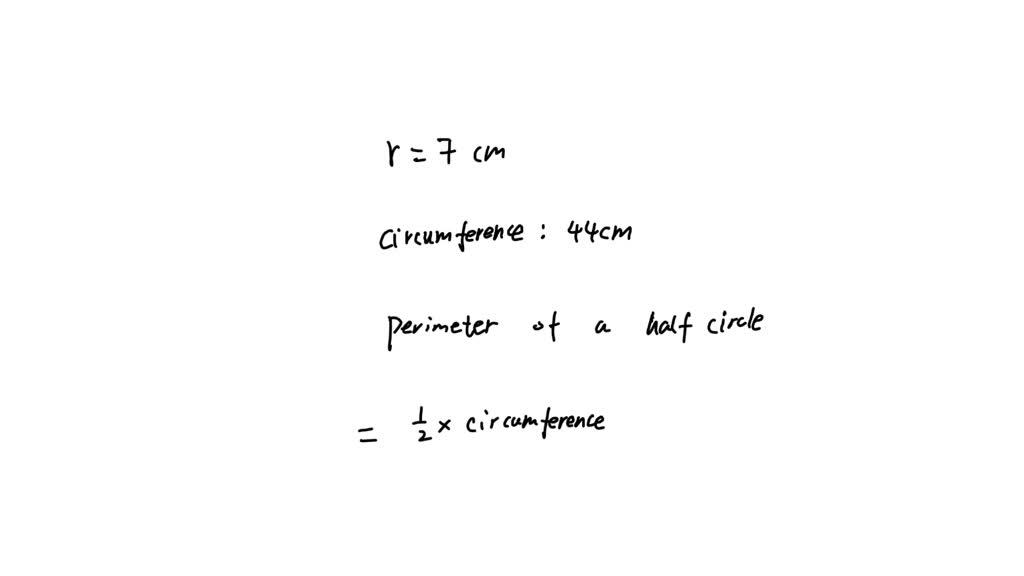 r = 7 cm
circumference : 44cm
perimeter of a half circle
= 1/2 × circumference